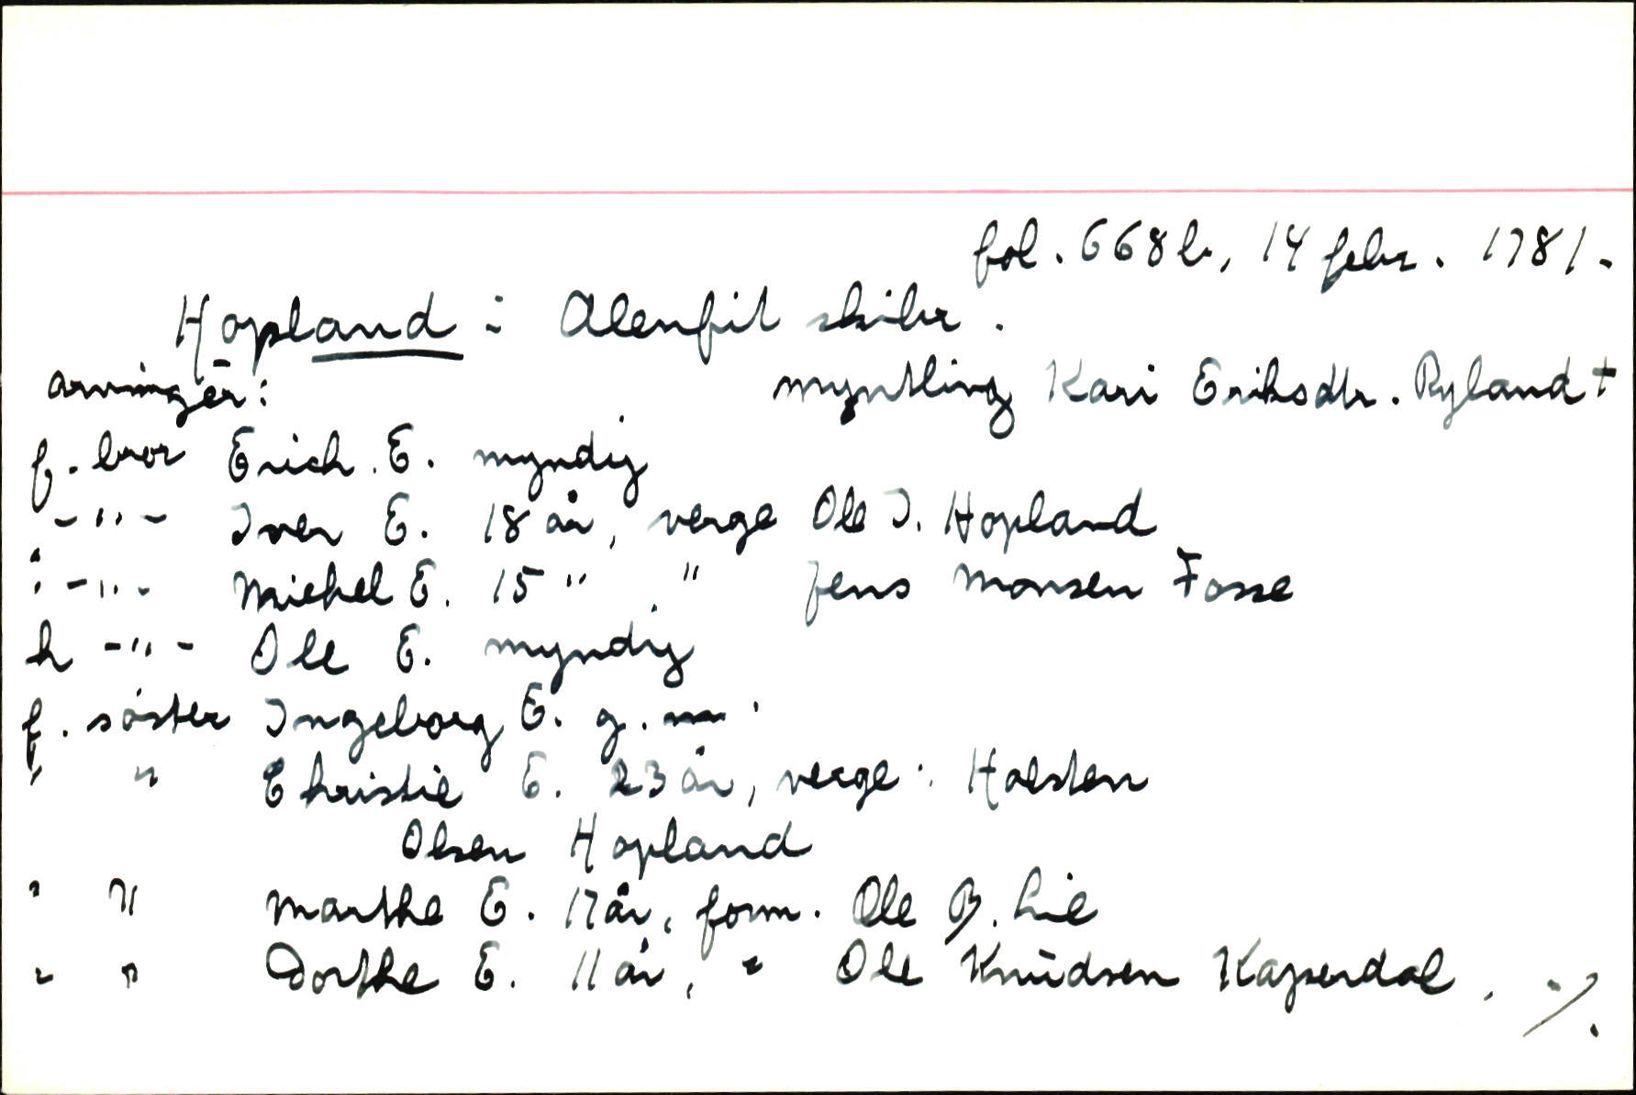 fol. 668b, 14 febr. 1781.
Hopland i Alenfit skibr.
arvinger: myntling Kari Eriksdtr. Ryland †
f. bror Erich E. myndig
-"- Iver E. 18 år, verge Ole I. Hopland
" -"- Michel E. 15 " " Jens Monsen Fosse
h -"- Ole E. myndig
f. søster Ingeborg E. g.
" " Christie E. 23 år, verge: Holsten
Olsen Hopland
" " Marthe E. 17 år, form. Ole B. Lie
" " Dorthe E. 11 år, " Ole Knudsen Kaperdal. ./.